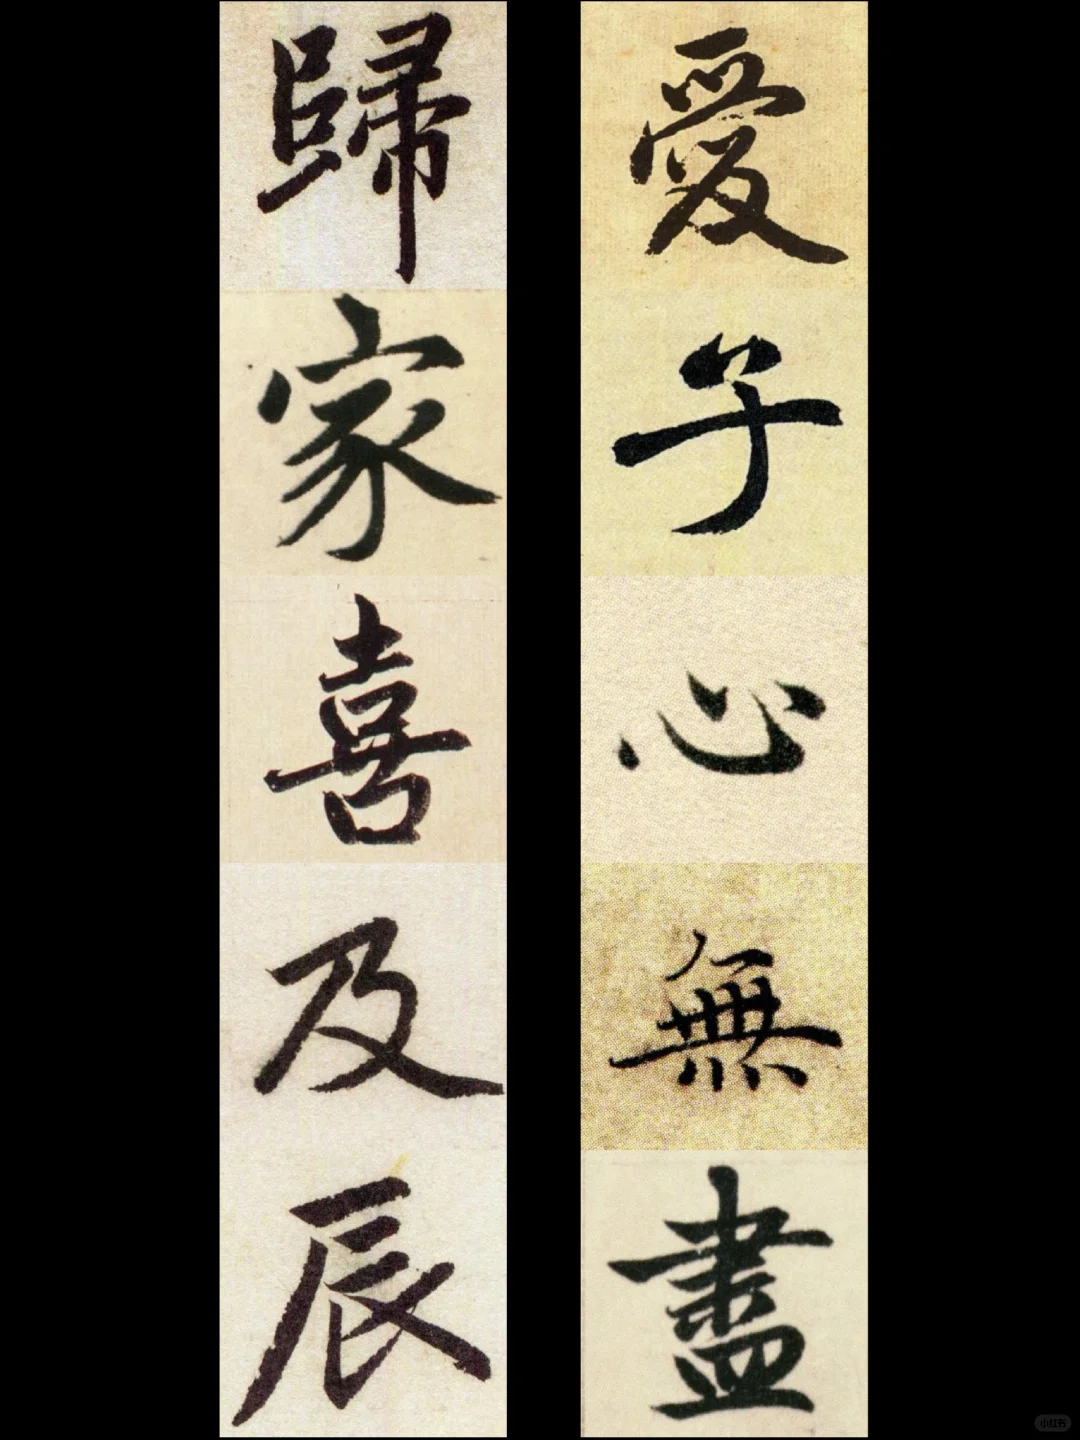 愛子心無盡
歸家喜及辰
小红书